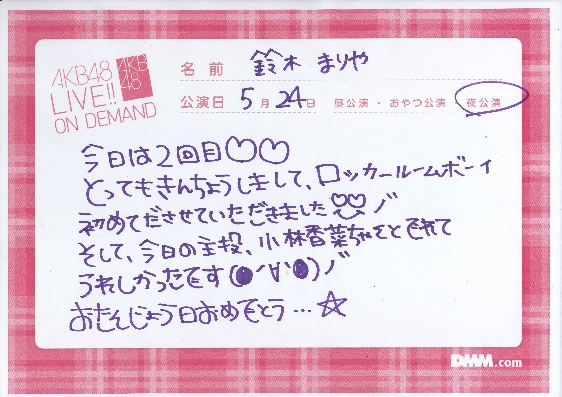 AKB48
LIVE!!
ON DEMAND
AKB
48
名前 鈴木 まりや
公演日 5月24日 昼公演・おやつ公演・夜公演
今日は2回目♡♡
とってもきんちょうしまして、ロッカールームボーイ
初めてださせていただきました
そして、今日の主役、小林香菜ちゃんとでれて
うれしかったです(●´∀`●)ノ
おたんじょう日おめでとう…☆
DMM.com